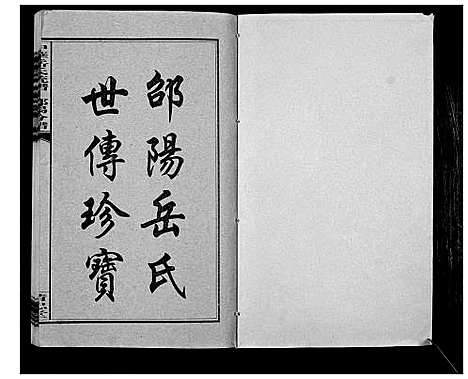 邵陽岳氏
世傳珍寶